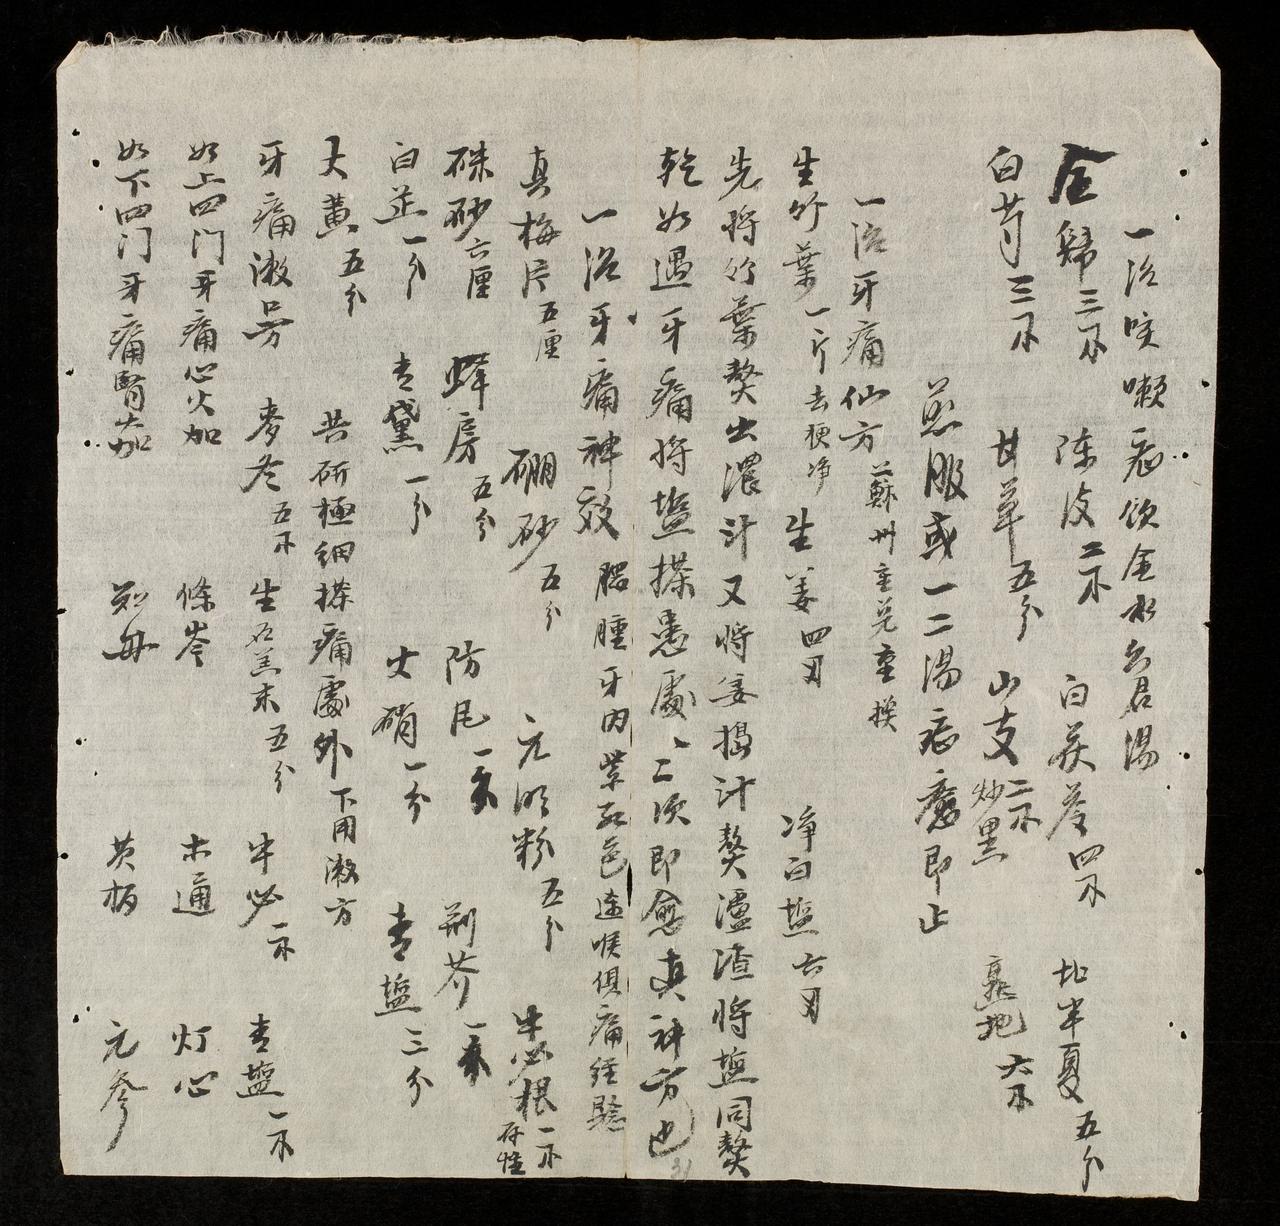 一治咳嗽症飲金水六君湯
全歸三不 陳皮二不 白茯苓四不 北半夏五分
白芍三不 甘草五分 山支二不炒黑 熟地六不
煎服或一二湯症癒即止
一治牙痛仙方 蘇州重兌重換
生竹葉一斤去梗净 生姜四刄 净白塩六刄
先將竹葉熬出濃汁又將姜搗汁熬瀘渣將塩同熬
乾如遇牙痛將塩搽患處、二次即愈真神方也
一治牙痛神效 腮腫牙內紫紅色連喉俱痛經驗
真梅片五厘 硼砂五分 元明粉五分 牛必根一不存性
硃砂六厘 蜂房五分 防風一 荊芥一
白芷一分 青黛一分 火硝一分 青塩三分
大黃五分 共研極細搽痛處外下用漱方
牙痛漱方 麥冬五不 生石羔末五分 牛必一不 青塩一不
如上四门牙痛心火加 條岑 木通 灯心
如下四门牙痛腎加 知母 黃柏 元參